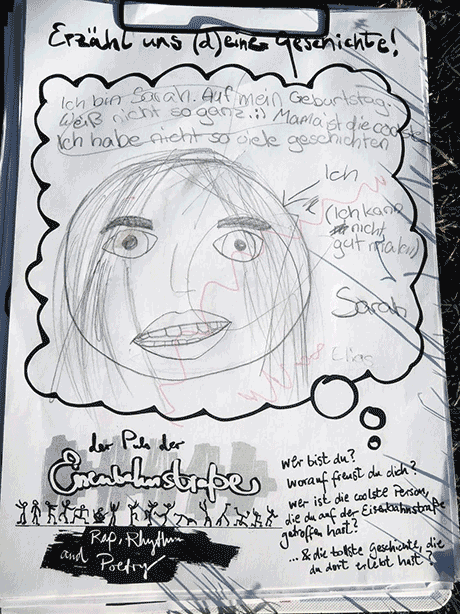 Erzähl uns (d)eine Geschichte!
Ich bin Sarah. Auf mein Geburtstag.
Weiß nicht so ganz :) Mama ist die coolste
Ich habe nicht so viele geschichten
Ich
(Ich kann
nicht
gut malen)
Sarah
der Puls der
Eisenbahnstraße
Rap, Rhythm
and Poetry
wer bist du?
Worauf freust du dich?
wer ist die coolste Person,
die du auf der Eisenbahnstraße
getroffen hast?
... & die tollste Geschichte, die
du dort erlebt hast?